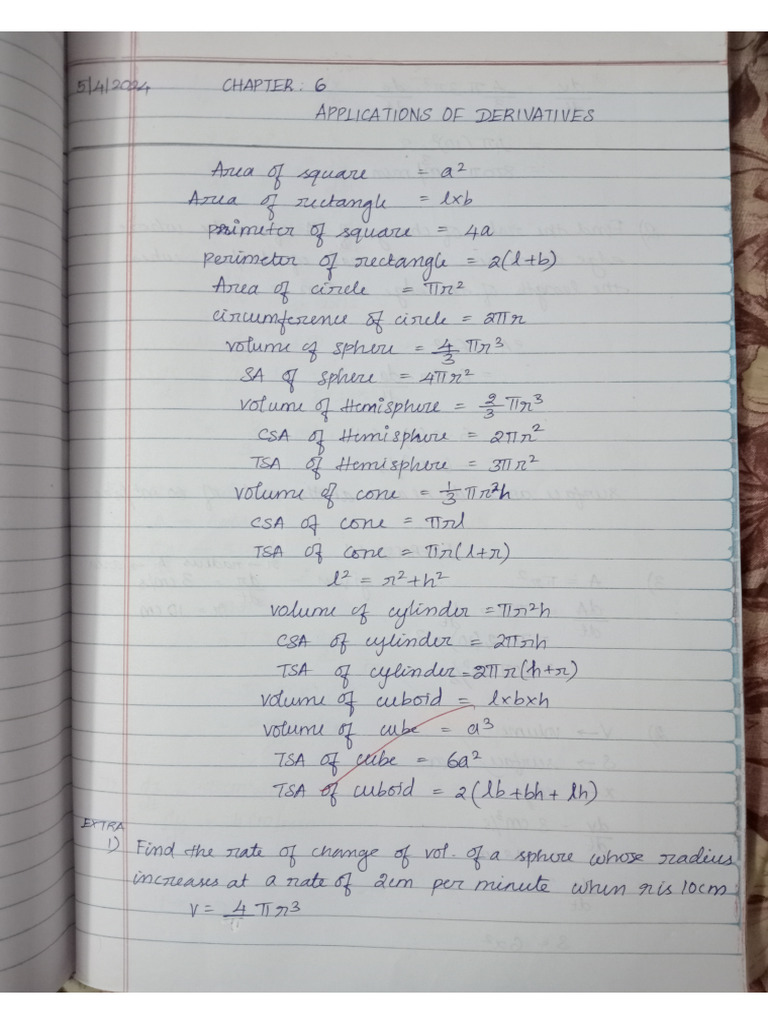 5/4/2024 CHAPTER: 6
APPLICATIONS OF DERIVATIVES
Area of square = a²
Area of rectangle = l×b
perimeter of square = 4a
perimeter of rectangle = 2(l+b)
Area of circle = πr²
circumference of circle = 2πr
volume of sphere = 4/3 πr³
SA of sphere = 4πr²
volume of Hemisphere = 2/3 πr³
CSA of Hemisphere = 2πr²
TSA of Hemisphere = 3πr²
volume of cone = 1/3 πr²h
CSA of cone = πrl
TSA of cone = πr(l+r)
l² = r²+h²
volume of cylinder = πr²h
CSA of cylinder = 2πrh
TSA of cylinder = 2πr(h+r)
volume of cuboid = l×b×h
volume of cube = a³
TSA of cube = 6a²
TSA of cuboid = 2(lb+bh+lh)
EXTRA
1) Find the rate of change of vol. of a sphere whose radius
increases at a rate of 2cm per minute when r is 10cm
V = 4 πr³